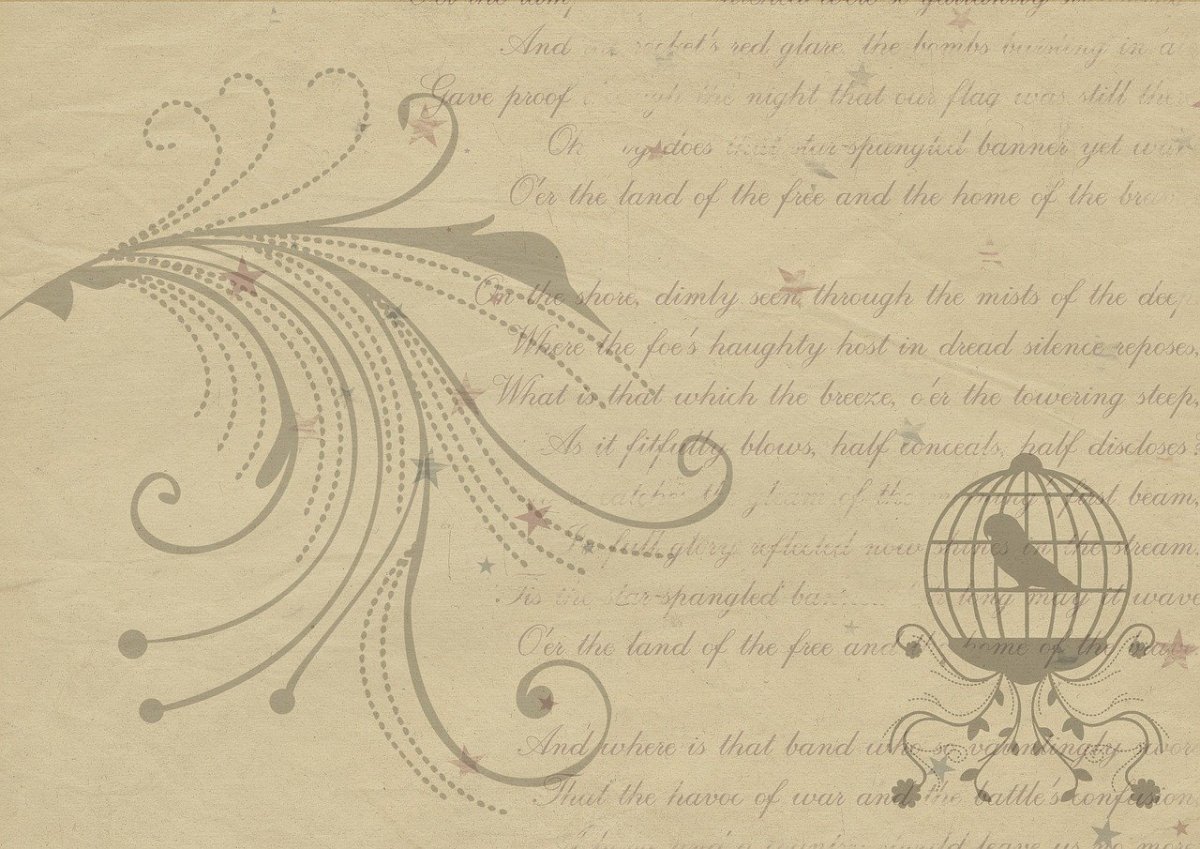 And rocket's red glare, the bombs bursting in a
Gave proof through the night that our flag was still the
Oh does that star-spangled banner yet
O'er the land of the free and the home of the
On the shore, dimly seen through the mists of the deep
Where the foe's haughty host in dread silence reposes,
What is that which the breeze, o'er the towering steep,
As it fitfully blows, half conceals, half discloses?
catches the gleam of the first beam,
In full glory reflected now shines in the stream:
'Tis the star-spangled long may it wave
O'er the land of the free and the home of the
And where is that band who so vauntingly swore
That the havoc of war and the battle's confusion